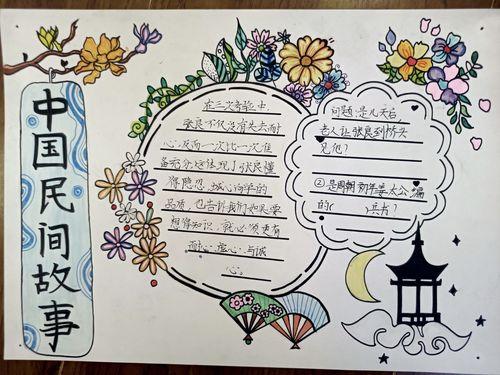 中国民间故事
在三次考验中,
张良不仅没有失去耐
心,反而一次比一次准
备充分,这体现了张良懂
得隐忍、诚心治学的
品质,也告诉我们如果要
想得知识,就必须要有
耐心、虚心与诚
心。
问题:是几天后
老人让张良到桥头
见他?
②是周朝初年姜太公编
的( )兵书?